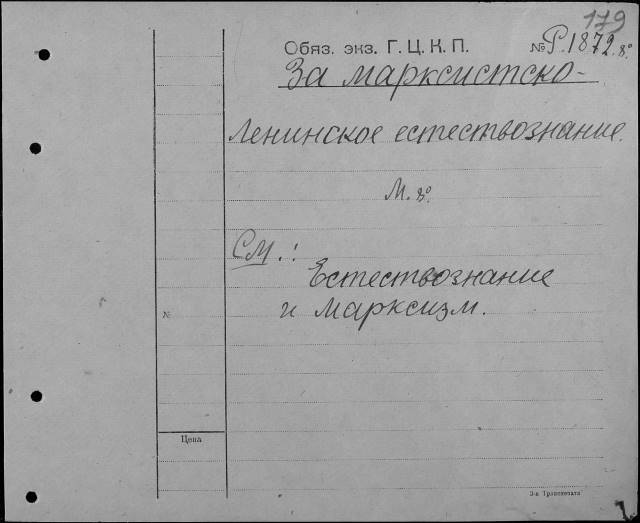 179
Обяз. экз. Г. Ц. К. П. № Р.1872.8°
За марксистско-
Ленинское естествознание.
М. 8°.
См.:
Естествознание
и марксизм.
№
Цена
З-я Транспечати